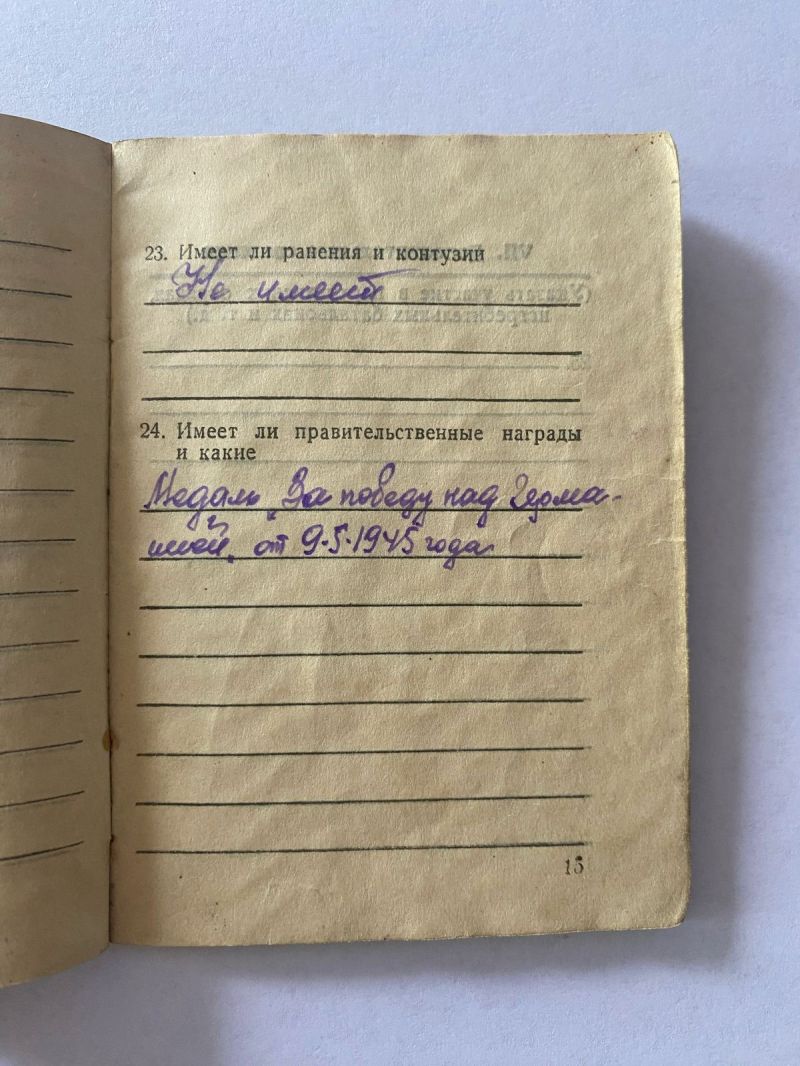 23. Имеет ли ранения и контузии
Не имеет
24. Имеет ли правительственные награды
и какие
Медаль „За победу над Герма-
нией„ от 9·5·1945 года
15